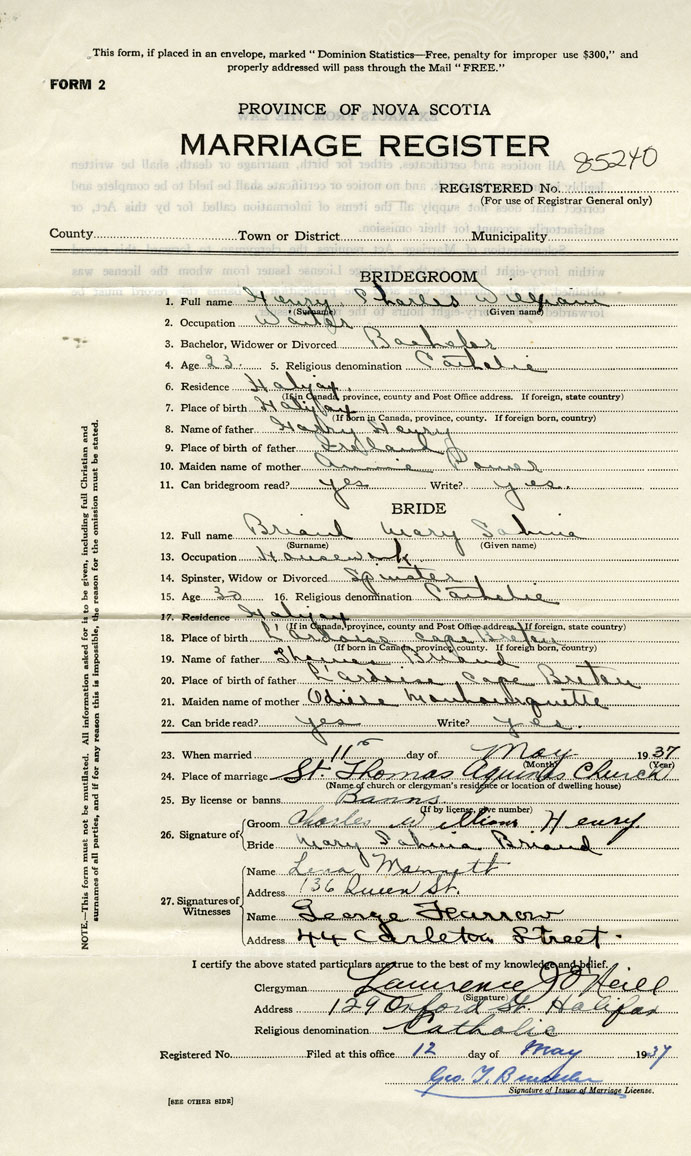 This form, if placed in an envelope, marked "Dominion Statistics—Free, penalty for improper use $300," and
properly addressed will pass through the Mail "FREE."
FORM 2
PROVINCE OF NOVA SCOTIA
MARRIAGE REGISTER
85240
REGISTERED No.
(For use of Registrar General only)
County Town or District Municipality
BRIDEGROOM
1. Full name Henry Charles William
(Surname) (Given name)
2. Occupation Waiter
3. Bachelor, Widower or Divorced Bachelor
4. Age 23 5. Religious denomination Catholic
6. Residence Halifax
(If in Canada, province, county and Post Office address. If foreign, state country)
7. Place of birth Halifax
(If born in Canada, province, county. If foreign born, country)
8. Name of father Harry Henry
9. Place of birth of father Ireland
10. Maiden name of mother Annie Power
11. Can bridegroom read? yes Write? yes.
BRIDE
12. Full name Briand Mary Sabina
(Surname) (Given name)
13. Occupation Housework
14. Spinster, Widow or Divorced Spinster
15. Age 30 16. Religious denomination Catholic
17. Residence Halifax
(If in Canada, province, county and Post Office address. If foreign, state country)
18. Place of birth L'Ardoise Cape Breton
(If born in Canada, province, county. If foreign born, country)
19. Name of father Thomas Briand
20. Place of birth of father L'ardoise Cape Breton
21. Maiden name of mother Odile
22. Can bride read? yes Write? yes.
23. When married 11th day of May 1937
(Month) (Year)
24. Place of marriage St. Thomas Aquinas Church
(Name of church or clergyman's residence or location of dwelling house)
25. By license or banns Banns
(If by license, give number)
26. Signature of
Groom Charles William Henry
Bride Mary Sabina Briand
27. Signatures of Witnesses
Name Lena
Address 136 Queen St.
Name George Farrow
Address 44 Carleton Street.
I certify the above stated particulars are true to the best of my knowledge and belief.
Clergyman Lawrence J O'Neill
(Signature)
Address 129 Oxford St. Halifax
Religious denomination Catholic
Registered No. Filed at this office 12 day of May 1937
Geo. T.
Signature of Issuer of Marriage License.
[SEE OTHER SIDE]
NOTE.—This form must not be mutilated. All information asked for is to be given, including full Christian and
surnames of all parties, and if for any reason this is impossible, the reason for the omission must be stated.